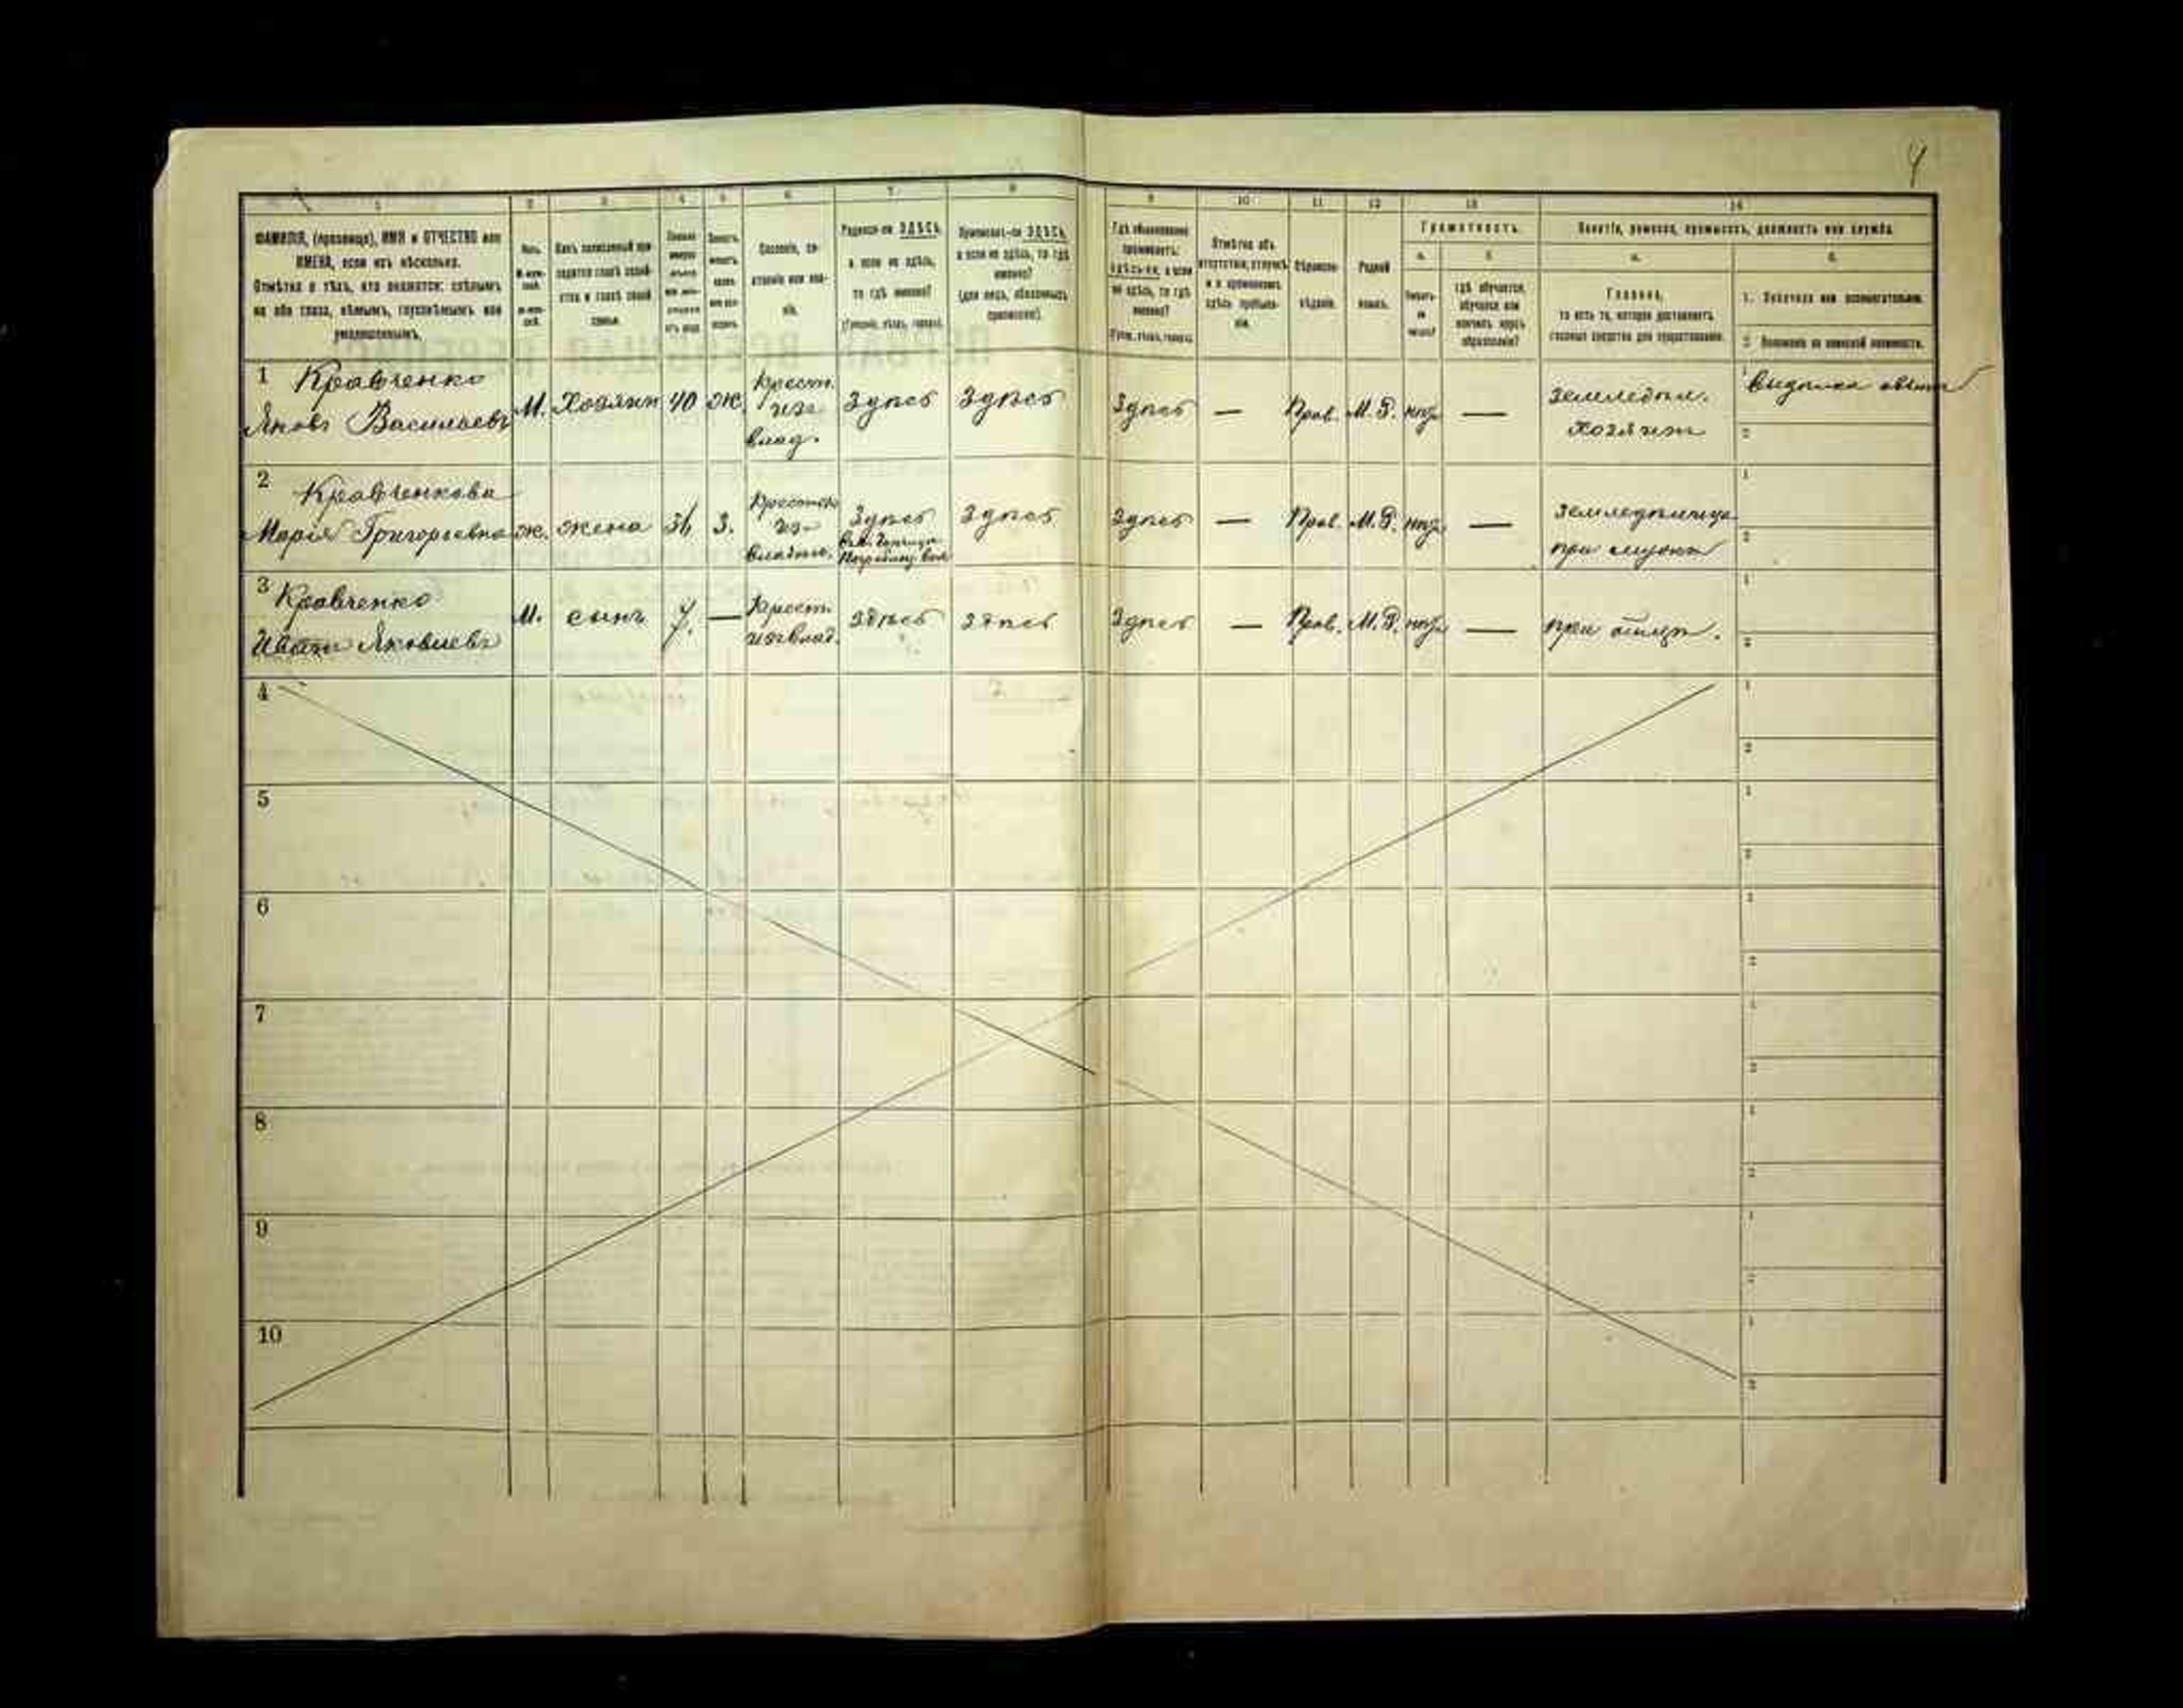 4
1 2 3 4 5 6 7 8 9 10 11 12 13 14
ФАМИЛІЯ, (прозвище), ИМЯ и ОТЧЕСТВО или
ИМЕНА, если ихъ нѣсколько.
Отмѣтка о тѣхъ, кто окажется: слѣпымъ
на оба глаза, нѣмымъ, глухонѣмымъ или
умалишеннымъ.
Полъ.
Какъ записанный при-
ходится главѣ хозяй-
ства и главѣ своей
семьи.
Сословіе, со-
стояніе или зва-
ніе.
Родился-ли ЗДѢСЬ,
а если не здѣсь,
то гдѣ именно?
(Губернія, уѣздъ, городъ).
Приписанъ-ли ЗДѢСЬ,
а если не здѣсь, то гдѣ
именно?
(для лицъ, обязанныхъ
припискою).
Гдѣ обыкновенно
проживаетъ:
здѣсь-ли, а если
не здѣсь, то гдѣ
именно?
(Губ., уѣздъ, городъ).
Отмѣтка объ
отсутствіи, отлучкѣ
и о временномъ
здѣсь пребыва-
ніи.
Вѣроиспо-
вѣданіе.
Родной
языкъ.
Грамотность.
а. б.
Умѣетъ-
ли
читать?
гдѣ обучается,
обучался или
кончилъ курсъ
образованія?
Занятіе, ремесло, промыселъ, должность или служба
а. б.
Главное,
то есть то, которое доставляетъ
главныя средства для существованія.
1. Побочное или вспомогательное.
2. Положеніе по воинской повинности.
1 Кравченко
Яковъ Васильевъ
М. Хозяинъ 40 Ж.
Крест.
изъ
влад.
Здѣсь Здѣсь Здѣсь — Прав. М.Р. нѣтъ —
земледѣл.
хозяинъ
1
2
2 Кравченкова
Марія Григорьевна
ж. жена 36 З.
изъ
Здѣсь
Здѣсь Здѣсь — Прав. М.Р. нѣтъ —
при мужѣ
1
2
3 Кравченко
Иванъ Яковлевъ
М. сынъ 7. —
Крест.
изъ влад.
здѣсь здѣсь Здѣсь — Прав. М.Р. нѣтъ — при отцѣ.
1
2
4
1
2
5
1
2
6
1
2
7
1
2
8
1
2
9
1
2
10
1
2